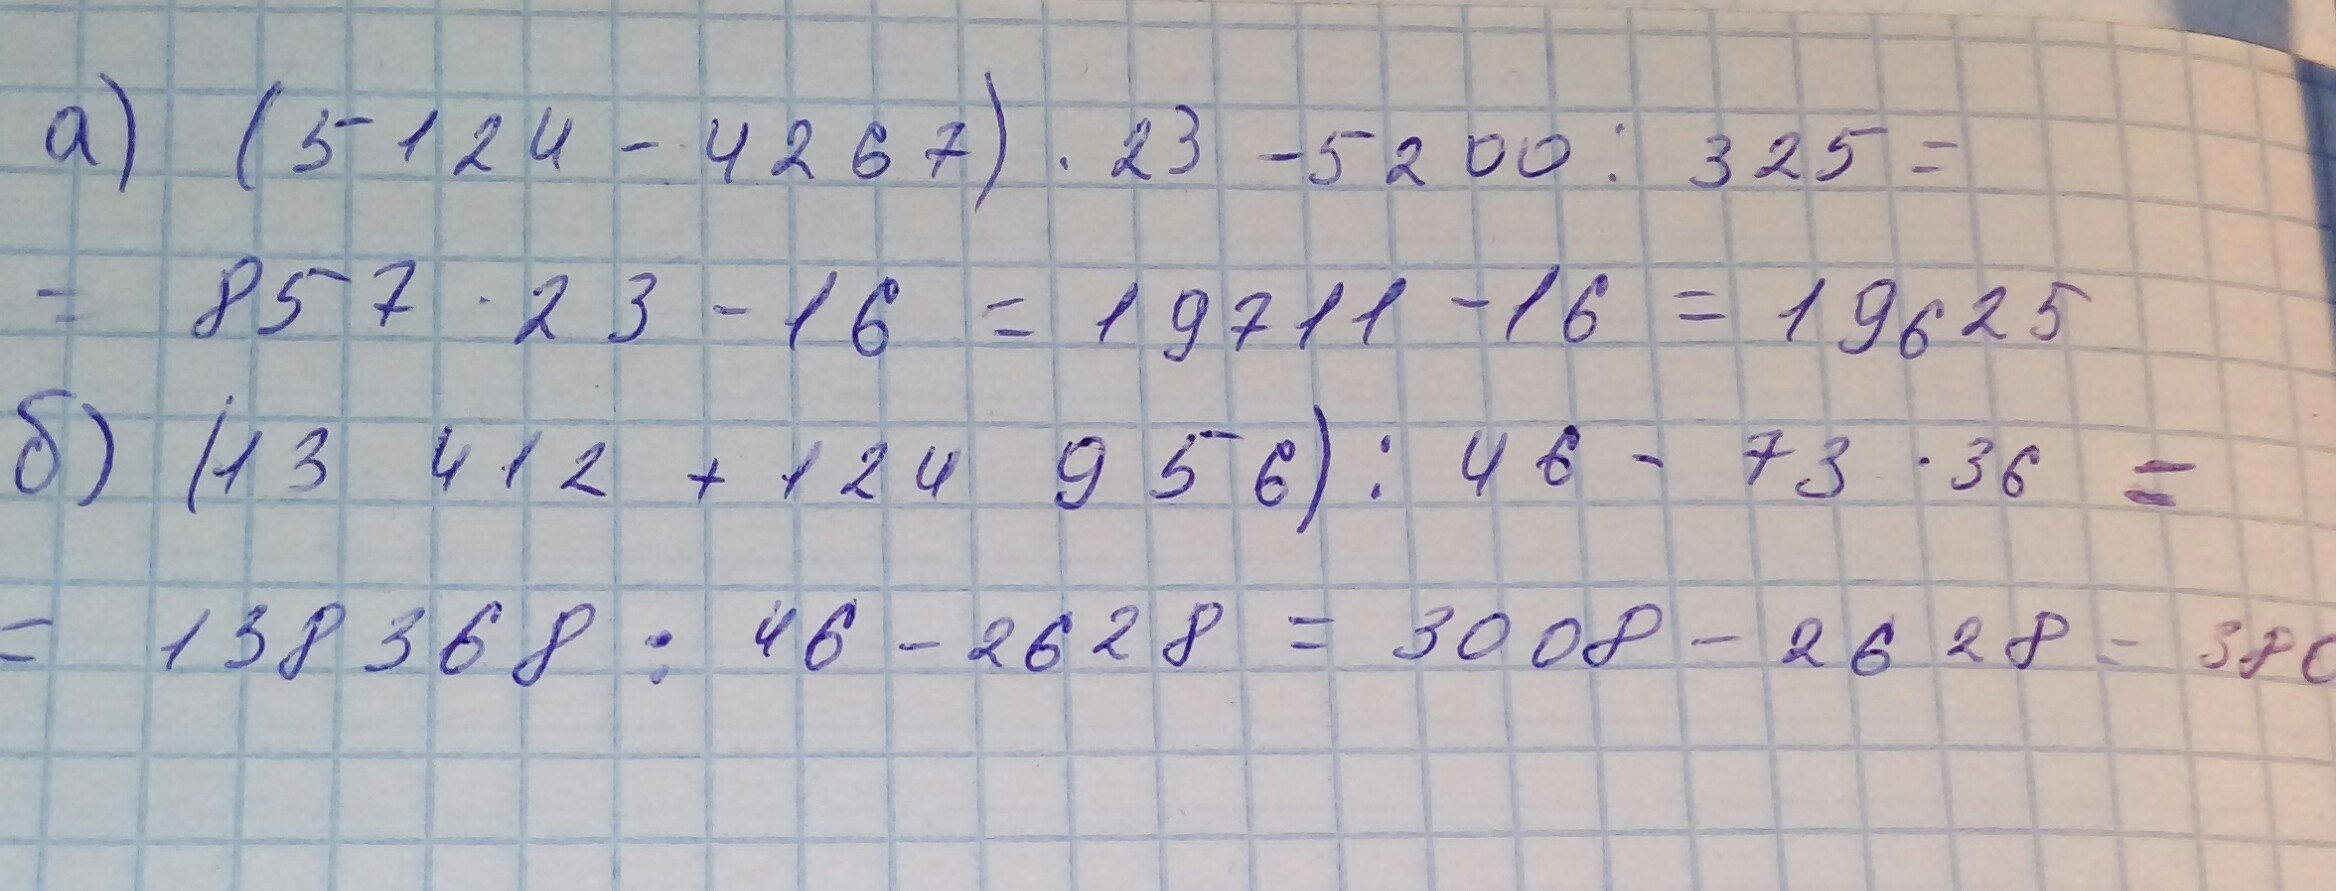 а) (5124 - 4267) · 23 - 5200 : 325 =
= 857 · 23 - 16 = 19711 - 16 = 19625
б) (13 412 + 124 956) : 46 - 73 · 36 =
= 138368 : 46 - 2628 = 3008 - 2628 = 380